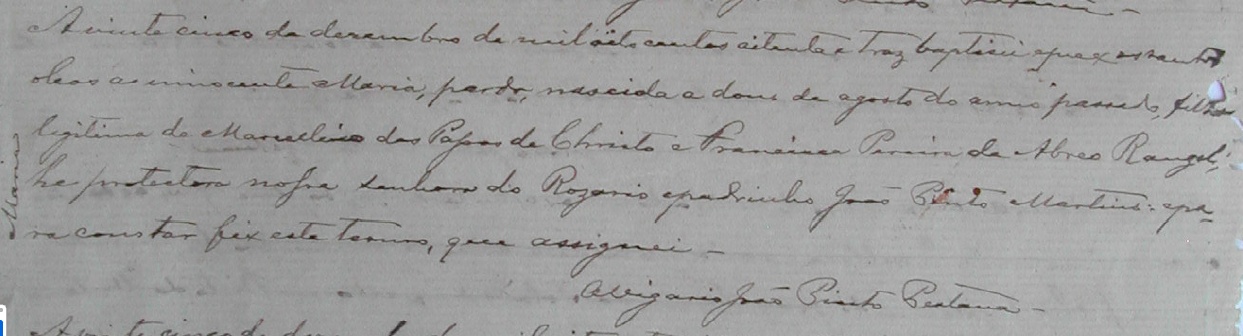 A vinte cinco de dezembro de mil oito centos oitenta e trez baptisei epuz os santos
oleos a innocente Maria, parda, nascida a dous de agosto do anno passado, filha
legitima de Marcellino dos Passos de Christo e Francisca Pereira de Abreo Rangel;
he protectora nossa senhora do Rozario epadrinho João Pinto Martins: epa=
ra constar fiz este termo, que assignei -
O Vigario João Pinto Pestana -
Maria
A vinte cinco de